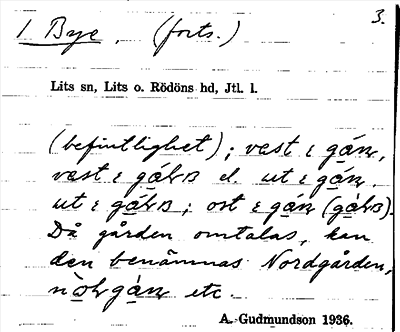 1 Bye, (forts.) 3.
Lits sn, Lits o. Rödöns hd, Jtl. l.
(befintlighet); väst ɛ gán,
väst ɛ el. ut ɛ gán,
ut ɛ ; ost ɛ gán
Då gården omtalas, kan
den benämnas Nordgården,
etc.
A. Gudmundson 1936.